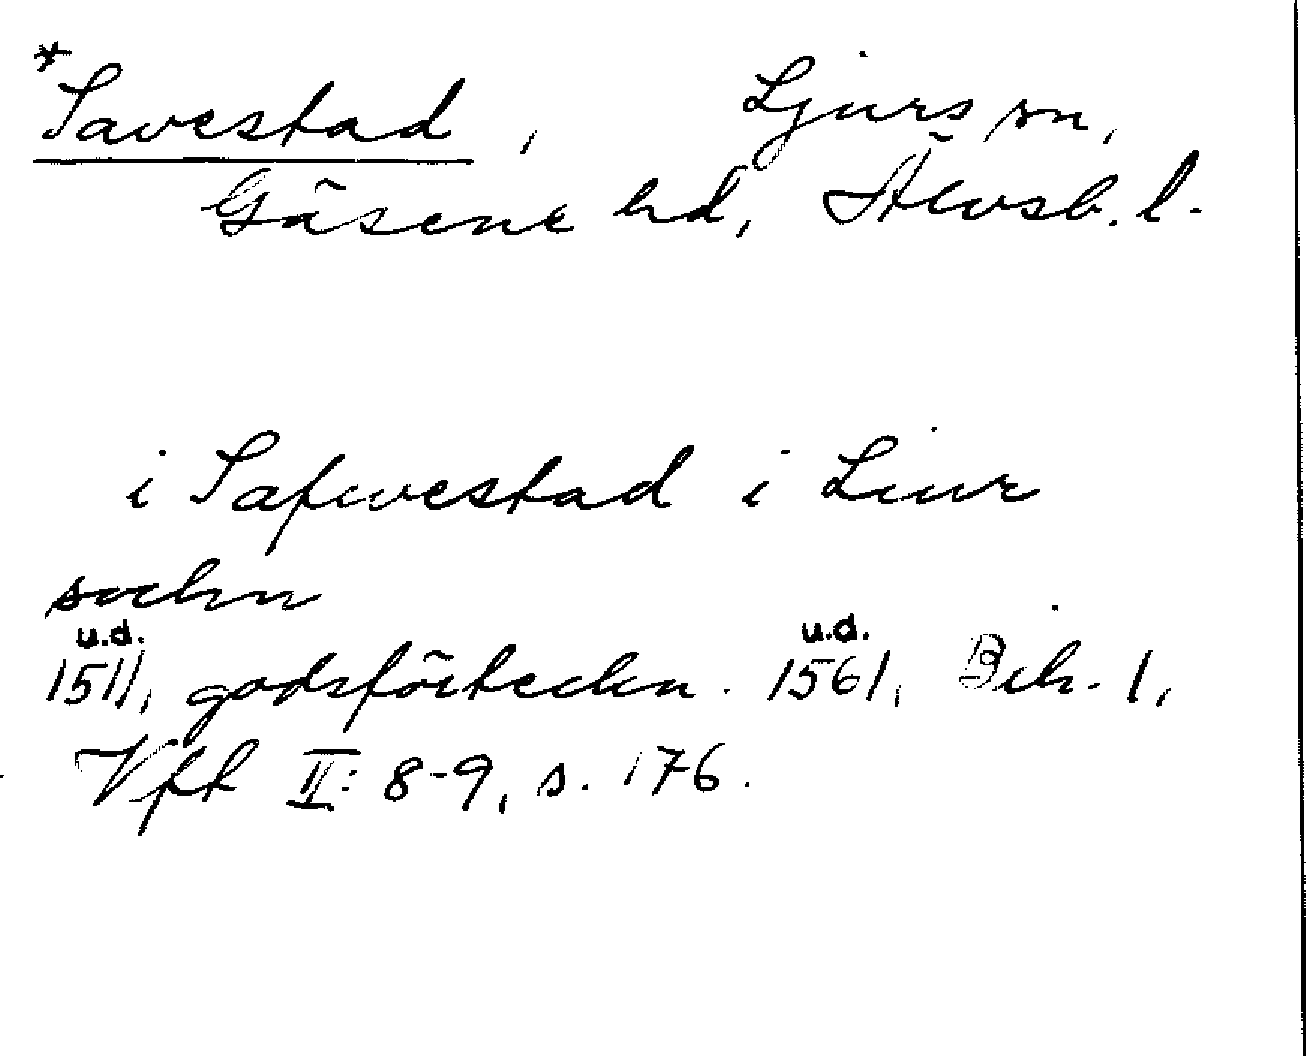 *Savestad, Ljurs sn,
Gäsene hd, Älvsb. l.
i Safwestad i Liur
sochn
u.d. u.d.
1511, godsförteckn. 1561, Bih. 1,
Vfk II: 8-9, s. 176.